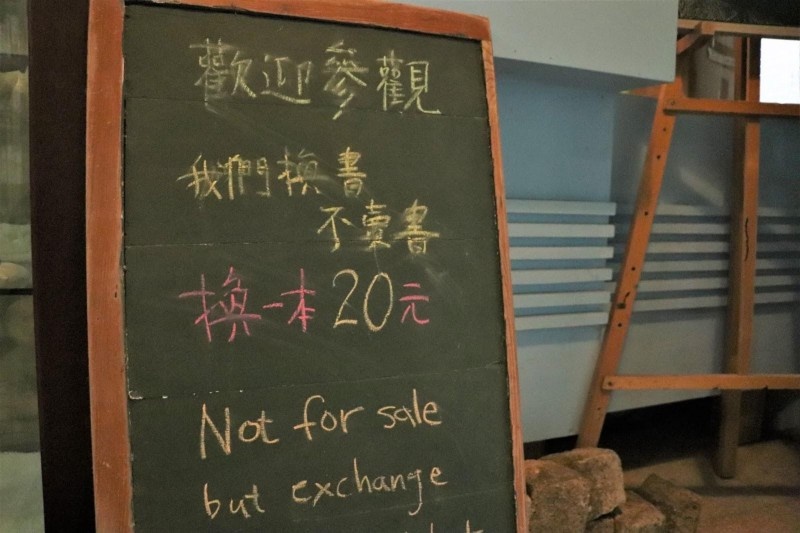 歡迎參觀
我們換書
不賣書
換一本20元
Not for sale
but exchange